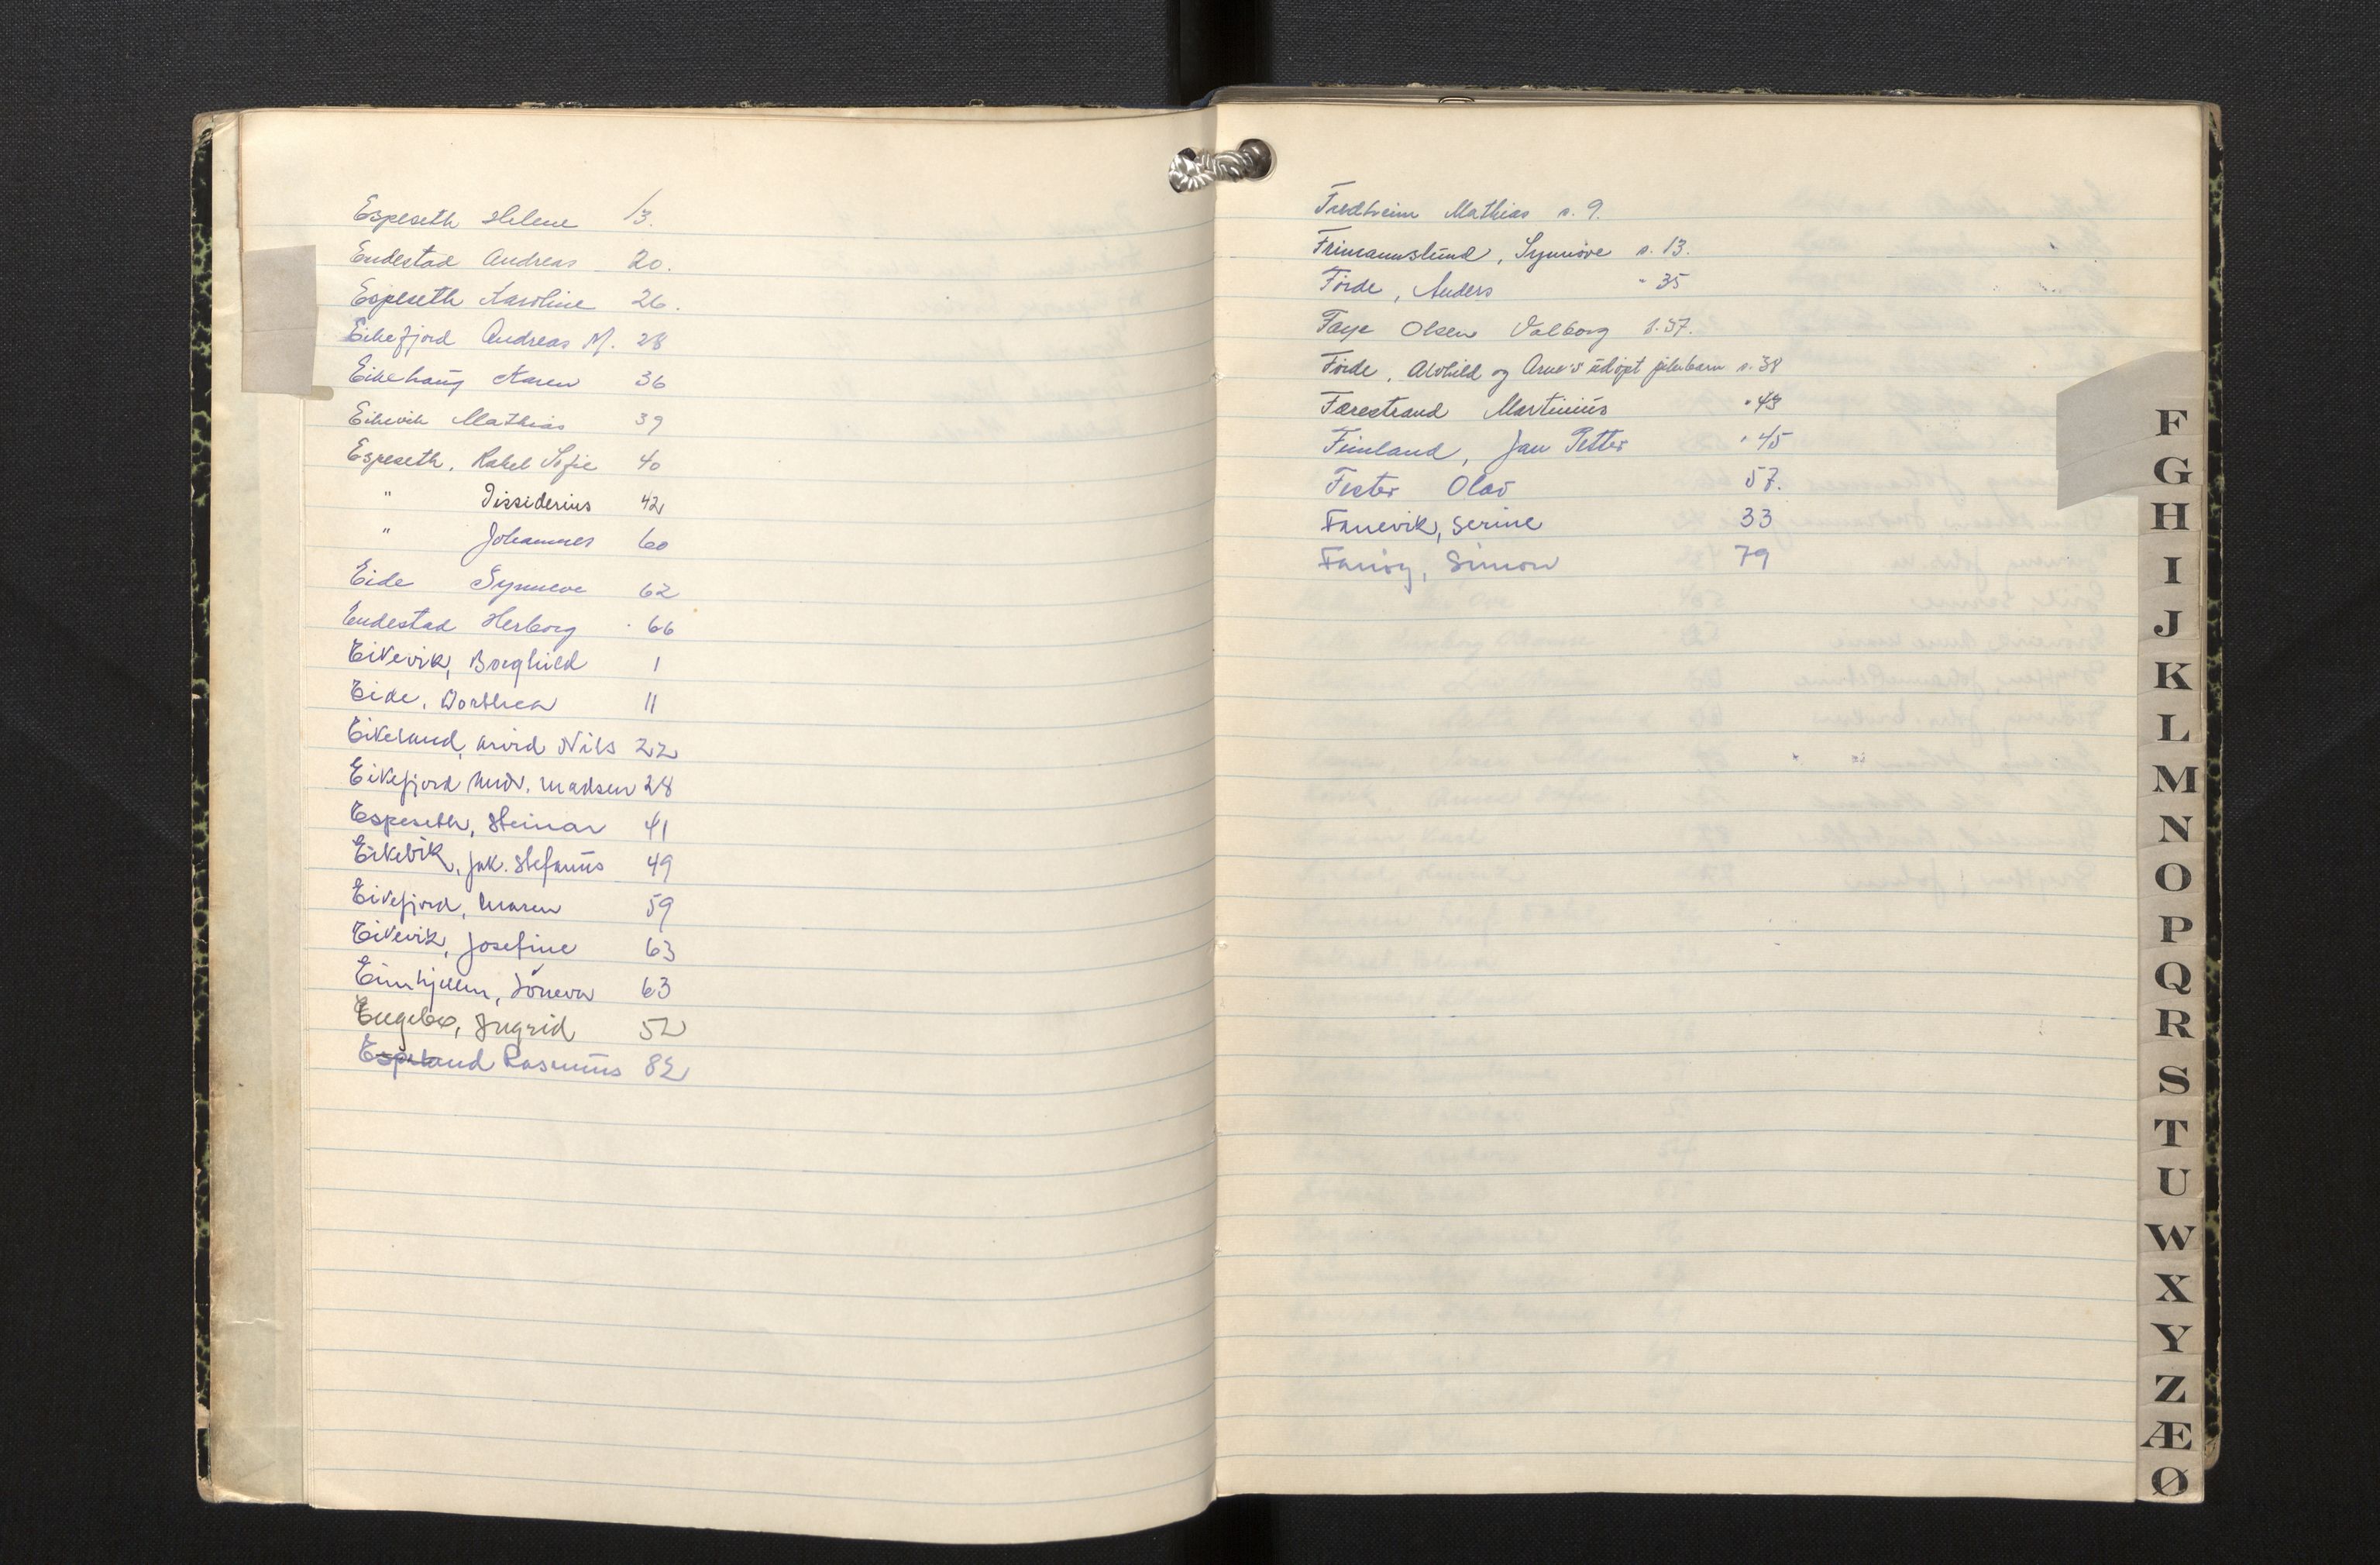 Espeseth Helene 13.
Endestad Andreas 20.
Espeseth Karoline 26.
Eikefjord Andreas M. 28
Eikehaug Karen 36
Eikevik Mathias 39
Espeseth, Rakel Sofie 40
" Dissiderius 42
" Johannes 60
Eide Synneve 62
Endestad Herborg 66
Eikevik, Borghild 1
Eide, Dorthea 11
Eikeland, Arvid Nils 22
Eikefjord Andr. Madsen 28
Espeseth, Steinar 41
Eikevik, Jak. Stefanus 49
Eikefjord, Maren 59
Eikevik, Josefine 63
Eimhjellen, Søneva 63
Engebø, Ingrid 52
Espeland Rasmus 82
Fredheim Mathias s. 9.
Frimannslund, Synnøve s. 13.
Førde, Anders " 35
Faye Olsen Valborg s. 37.
Førde, Alvhild og Arne's udøpt pikebarn s. 38
Færestrand Martinius " 43
Feinland, Jan Petter " 45
Fester Olav 57.
Fanevik, Serine 33
Fanøy, Simon 79
F
G
H
I
J
K
L
M
N
O
P
Q
R
S
T
U
W
X
Y
Z
Æ
Ø